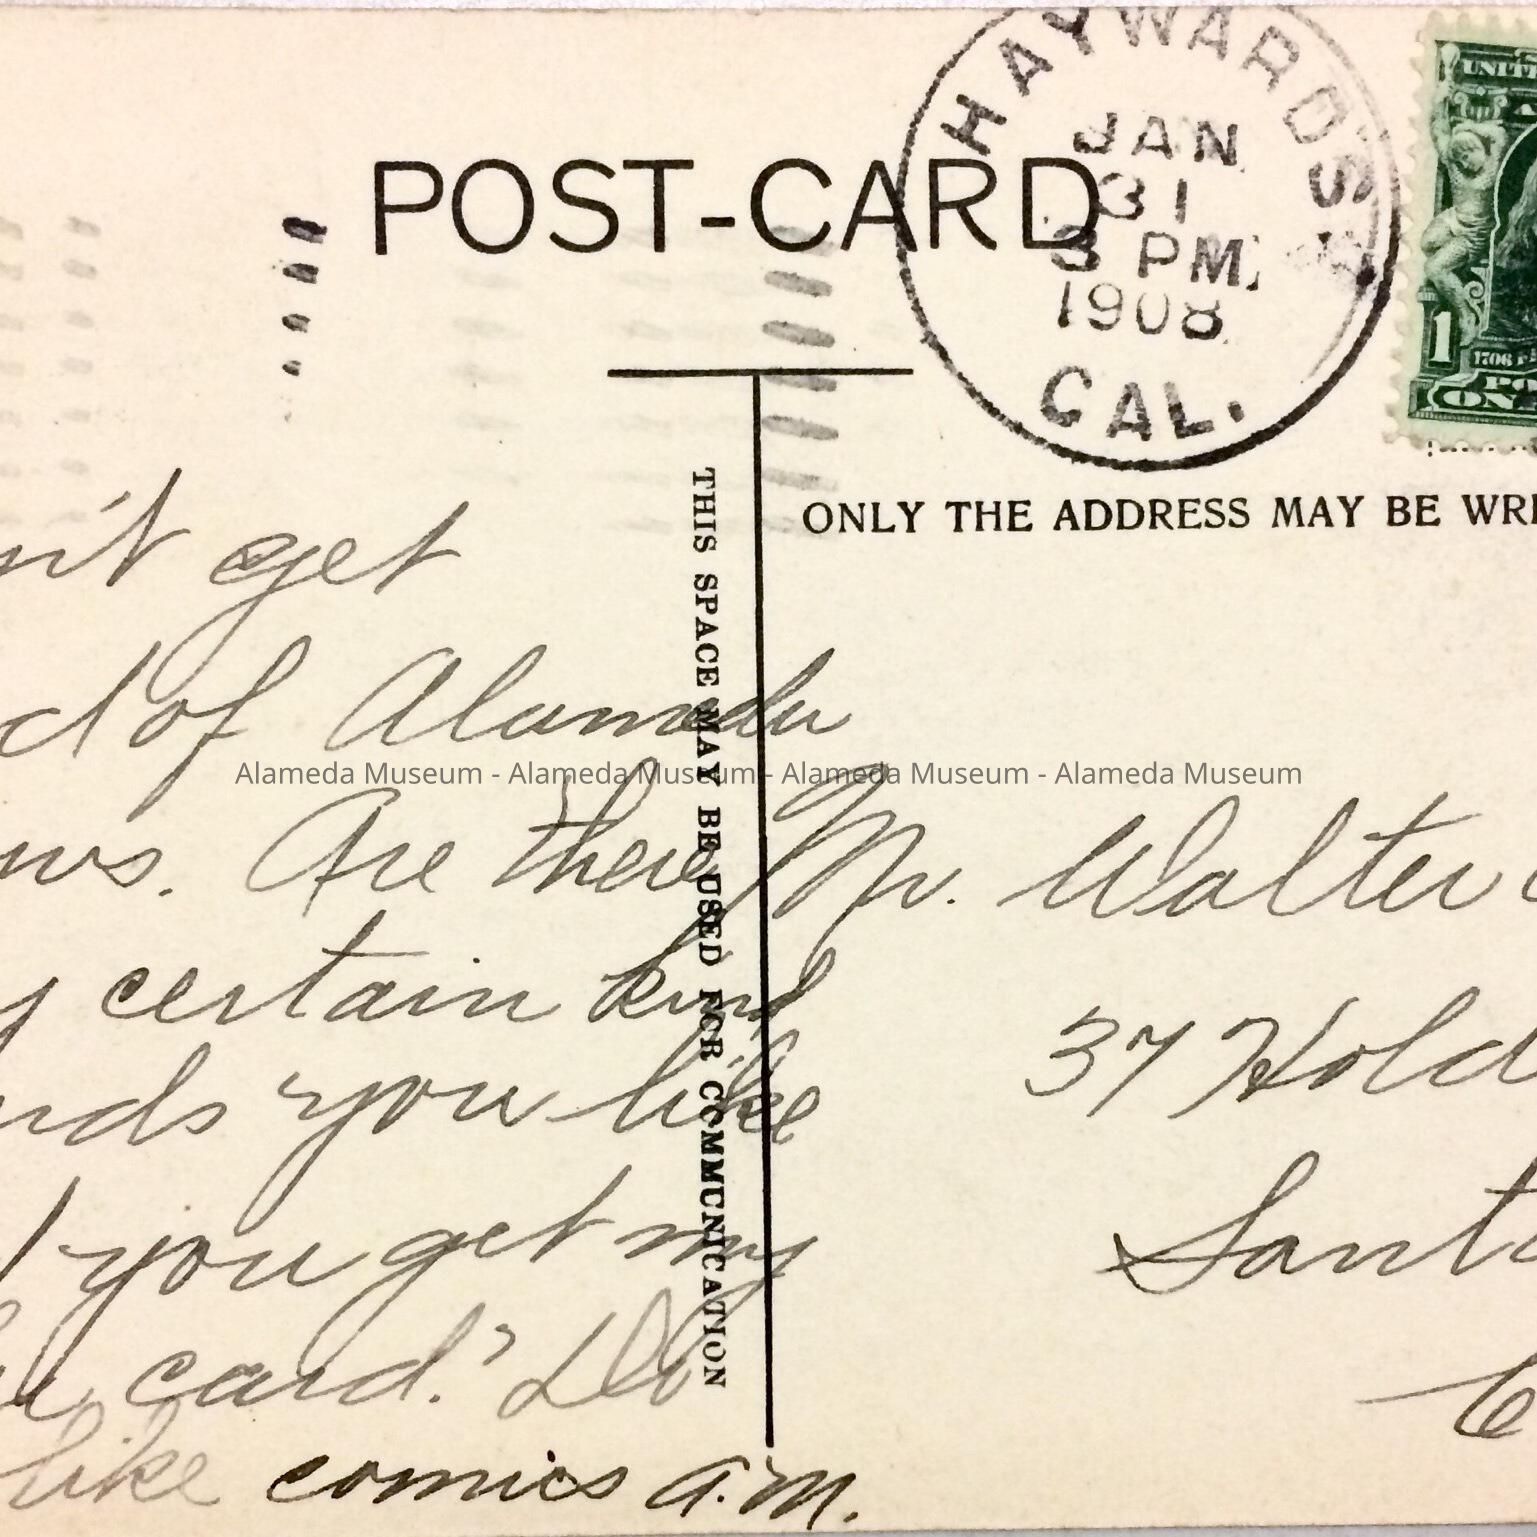 POST-CARD
HAYWARD'S
JAN
31
3 PM
1908
CAL.
UNITE
1
ON
THIS SPACE MAY BE USED FOR COMMUNICATION
ONLY THE ADDRESS MAY BE WRI
n't get
d of Alameda
ws. Are there
y certain kind
nds you like
d you get my
card? Do
like comics A.M.
Mr. Walter
37 Hold
Santa
C
Alameda Museum - Alameda Museum - Alameda Museum - Alameda Museum